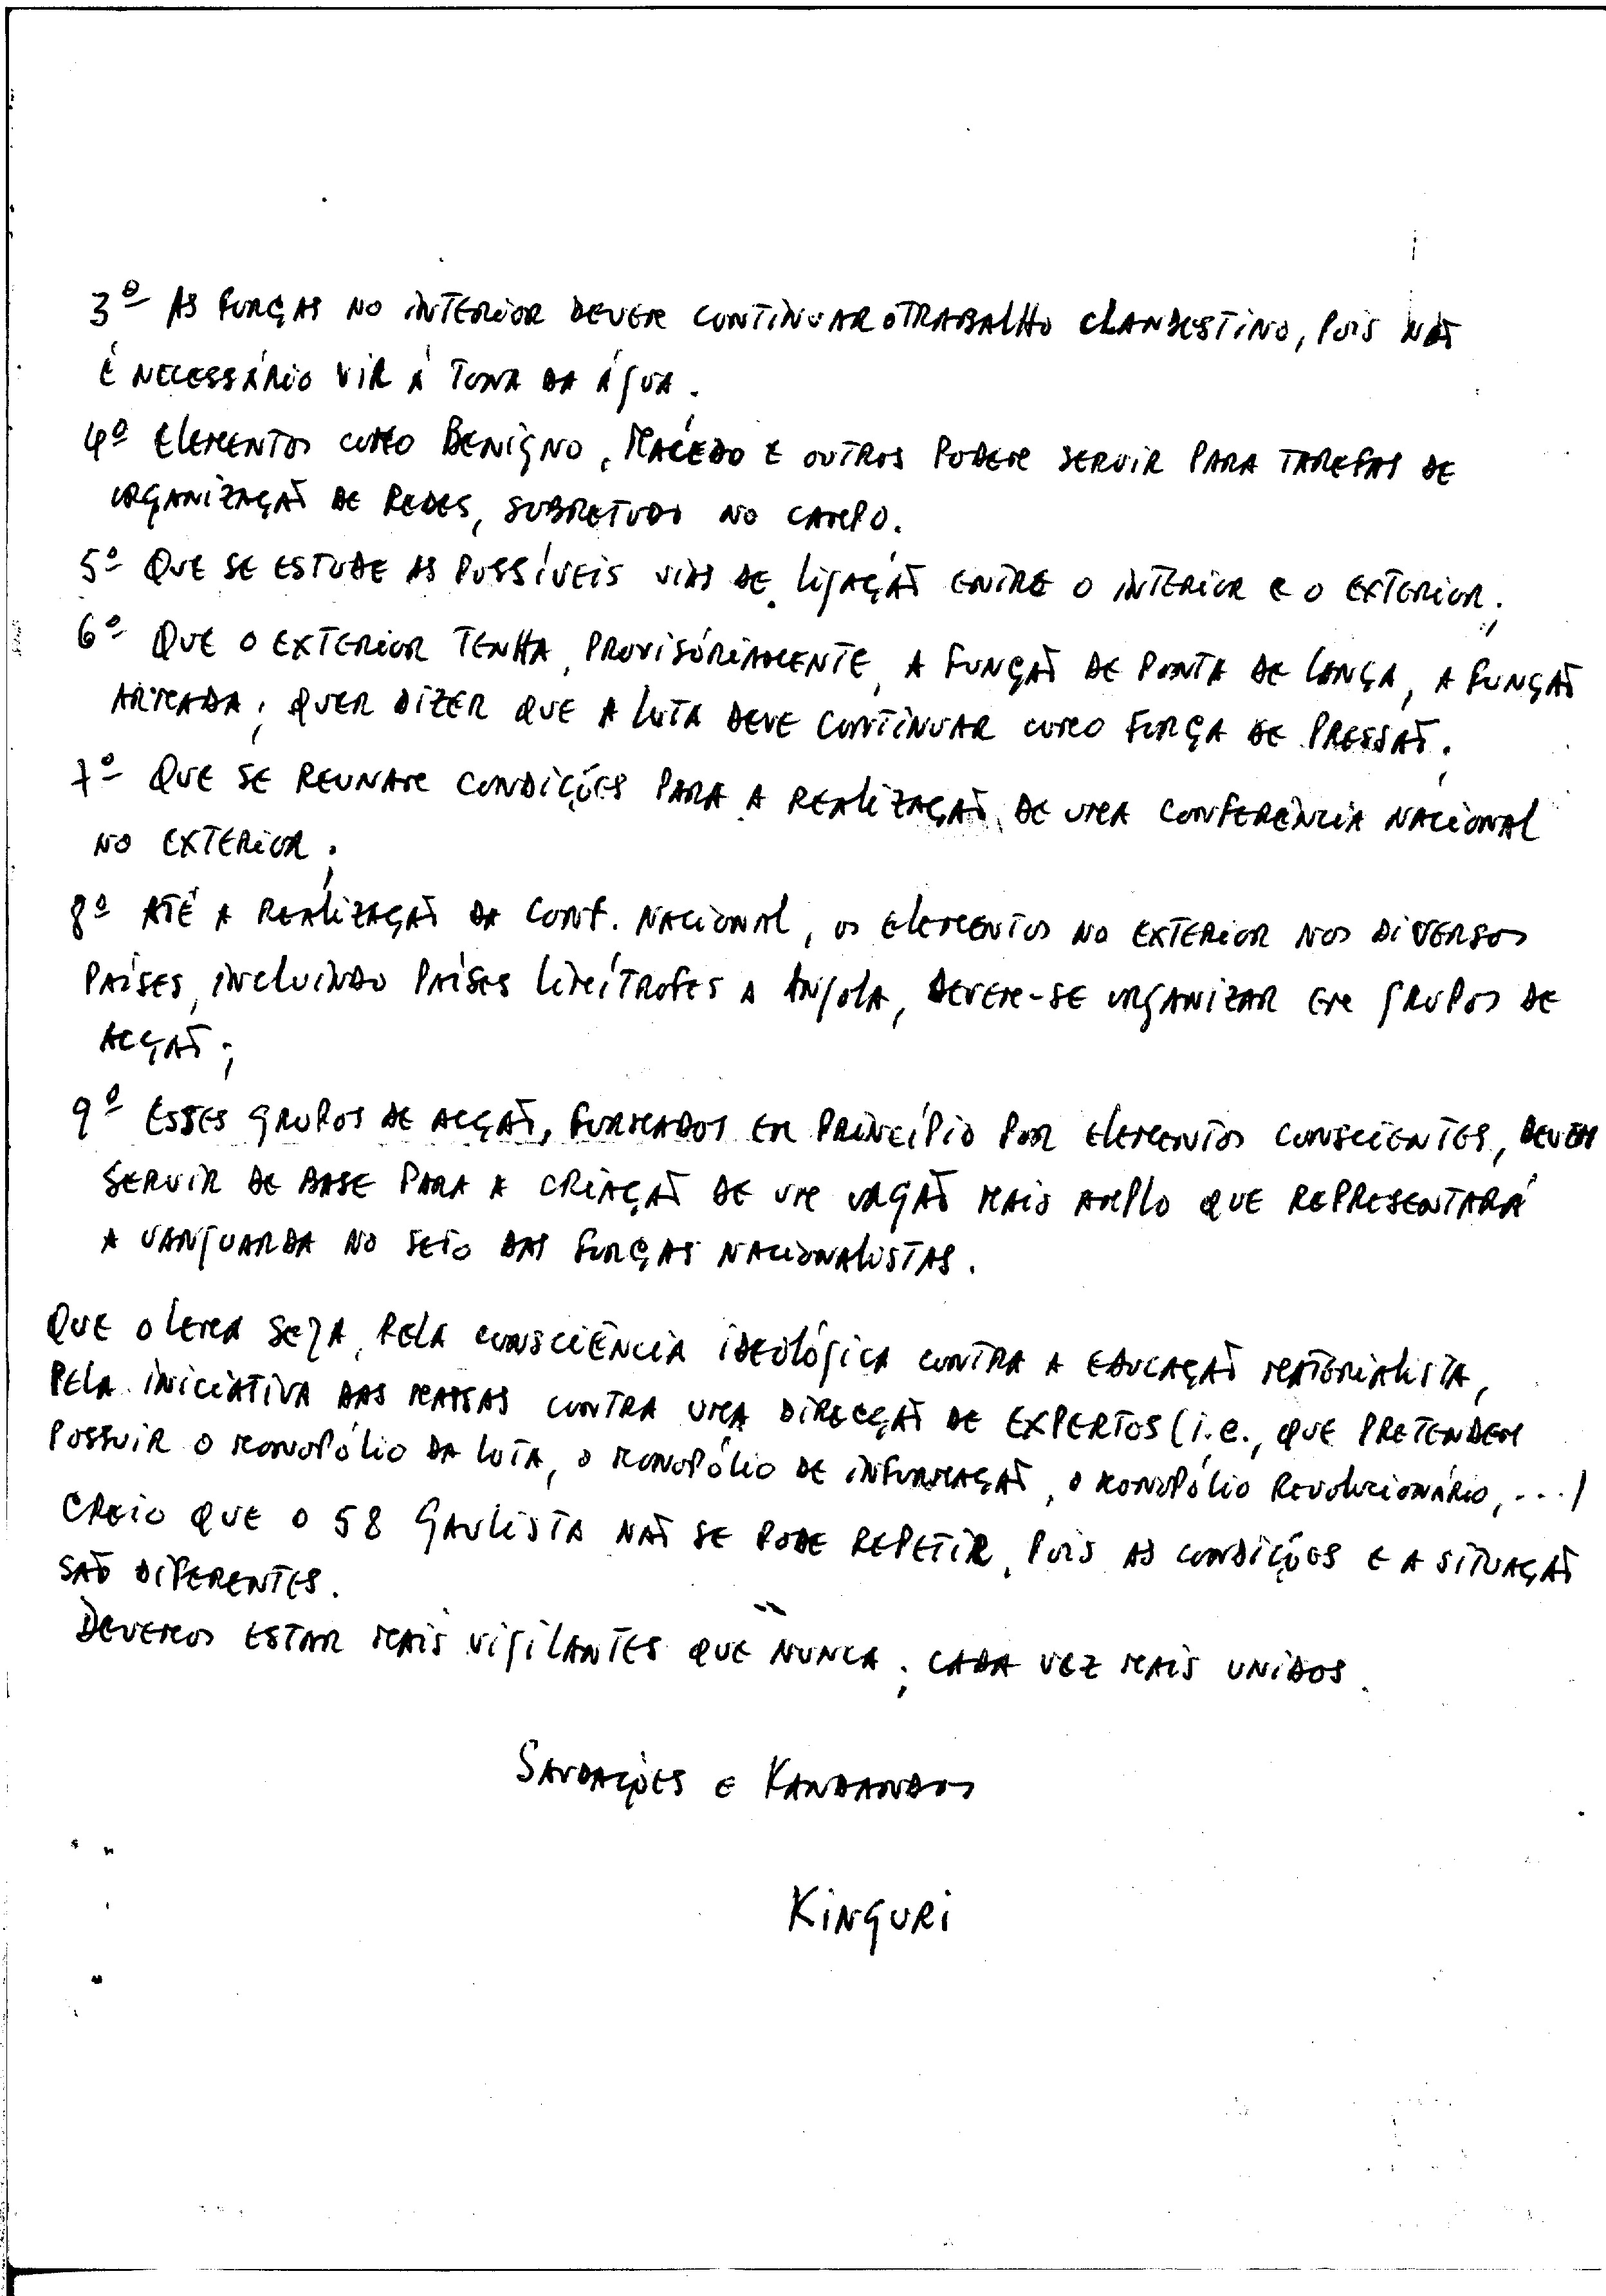 3º AS FORÇAS NO INTERIOR DEVEM CONTINUAR O TRABALHO CLANDESTINO, POIS NÃO
É NECESSÁRIO VIR À TONA DA ÁGUA.
4º ELEMENTOS COMO BENIGNO, MACEDO E OUTROS PODEM SERVIR PARA TAREFAS DE
ORGANIZAÇÃO DE REDES, SOBRETUDO NO CAMPO.
5º QUE SE ESTUDE AS POSSÍVEIS VIAS DE LIGAÇÃO ENTRE O INTERIOR E O EXTERIOR;
6º QUE O EXTERIOR TENHA, PROVISÓRIAMENTE, A FUNÇÃO DE PONTA DE LANÇA, A FUNÇÃO
ARMADA; QUER DIZER QUE A LUTA DEVE CONTINUAR COMO FORÇA DE PRESSÃO;
7º QUE SE REUNAM CONDIÇÕES PARA A REALIZAÇÃO DE UMA CONFERÊNCIA NACIONAL
NO EXTERIOR;
8º ATÉ A REALIZAÇÃO DA CONF. NACIONAL, OS ELEMENTOS NO EXTERIOR NOS DIVERSOS
PAÍSES, INCLUINDO PAÍSES LIMÍTROFES A ANGOLA, DEVEM-SE ORGANIZAR EM GRUPOS DE
ACÇÃO;
9º ESSES GRUPOS DE ACÇÃO, FORMADOS EM PRINCÍPIO POR ELEMENTOS CONSCIENTES, DEVEM
SERVIR DE BASE PARA A CRIAÇÃO DE UM ORGÃO MAIS AMPLO QUE REPRESENTARÁ
A VANGUARDA NO SEIO DAS FORÇAS NACIONALISTAS.
QUE O LEMA SEJA, PELA CONSCIÊNCIA IDEOLÓGICA CONTRA A EDUCAÇÃO MATERIALISTA,
PELA INICIATIVA DAS MASSAS CONTRA UMA DIRECÇÃO DE EXPERTOS (I.E., QUE PRETENDEM
POSSUIR O MONOPÓLIO DA LUTA, O MONOPÓLIO DE INFORMAÇÃO, O MONOPÓLIO REVOLUCIONÁRIO, ...)
CREIO QUE O 58 GAULISTA NÃO SE PODE REPETIR, POIS AS CONDIÇÕES E A SITUAÇÃO
SÃO DIFERENTES.
DEVEMOS ESTAR MAIS VIGILANTES QUE NUNCA; CADA VEZ MAIS UNIDOS.
SAUDAÇÕES E KANDANDOS
KINGURI